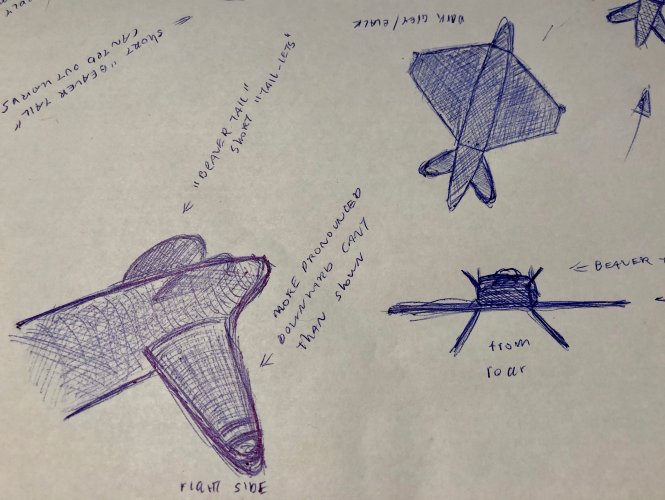 SHORT "BEAVER TAIL"
CANTED OUTWARDS
"BEAVER TAIL"
SHORT "TAIL-LETS"
DARK GREY/BLACK
MORE PRONOUNCED
DOWNWARD CANT
THAN SHOWN
BEAVER T
from
rear
RIGHT SIDE